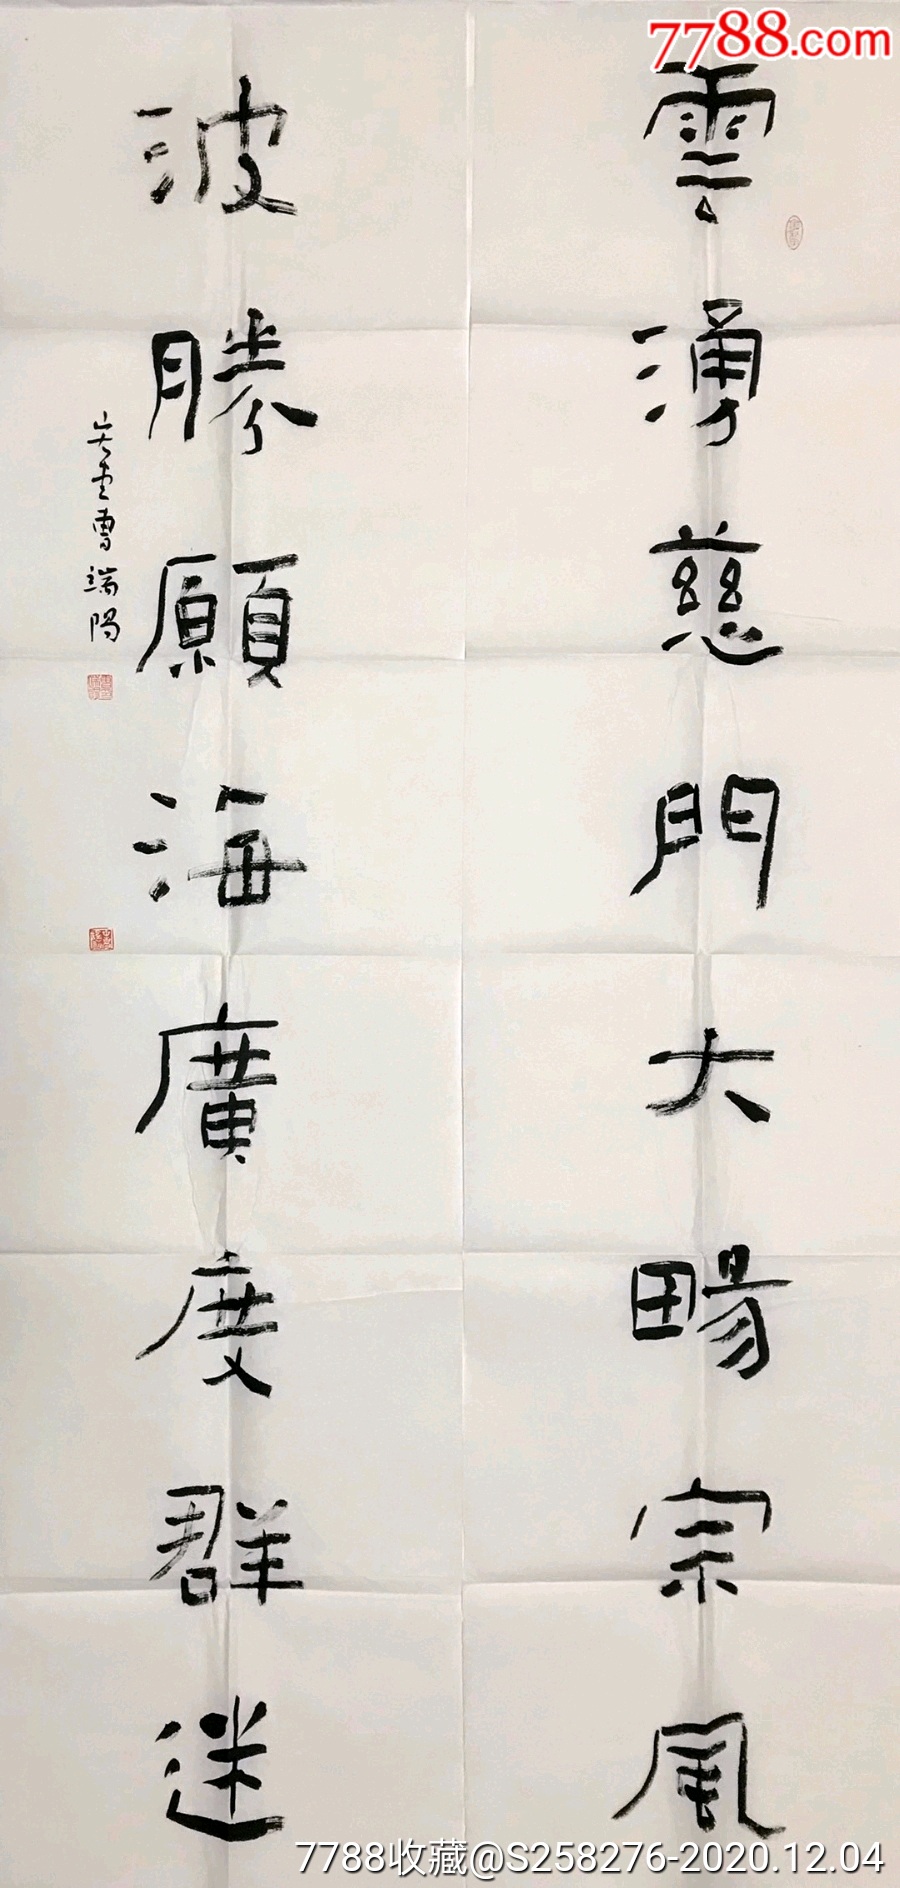 7788.com
雲湧慈門大暢宗風
波勝願海廣度群迷
曹端陽
7788收藏@S258276-2020.12.04